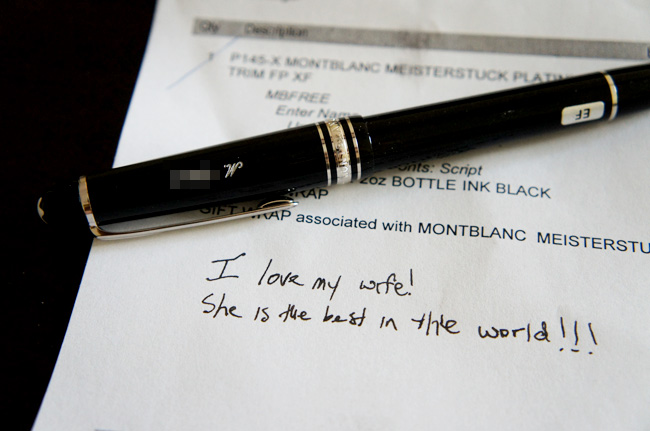 Qty Description
1 P145-X MONTBLANC MEISTERSTUCK
TRIM FP XF
MBFREE
Enter
EF
M.
Script
2oz BOTTLE INK BLACK
GIFT WRAP associated with MONTBLANC
I love my wife!
She is the best in the world!!!